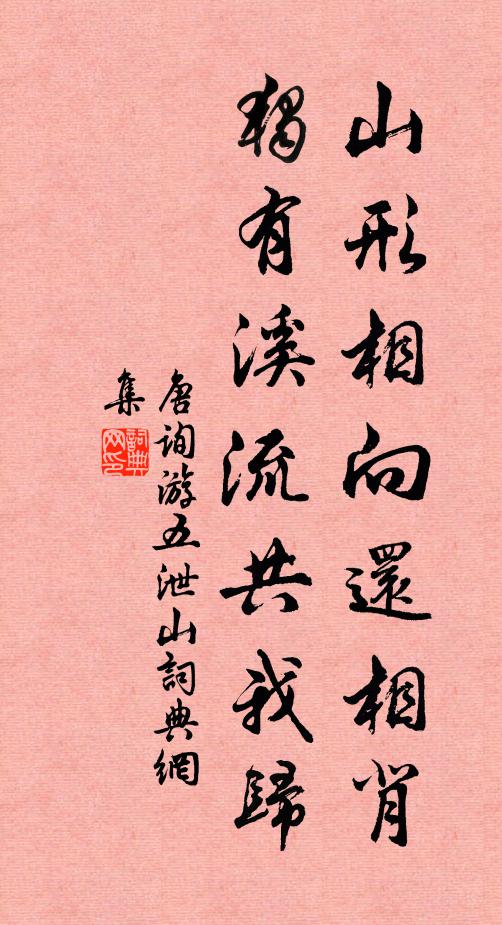 山形相向還相背
獨有溪流共我歸
唐詢游五泄山詞典網
集
詞典
网印